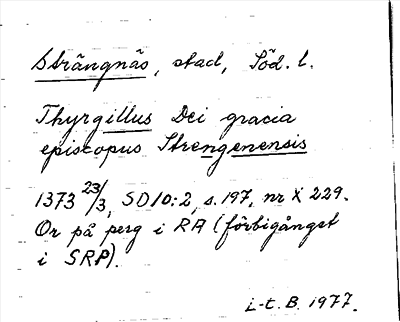 Strängnäs, stad, Söd. l.
Thyrgillus Dei gracia
episcopus Strengenensis
1373 23/3, SD 10:2, s. 197, nr X 229.
Or på perg i RA (förbigånget
i SRP).
L-t. B. 1977.